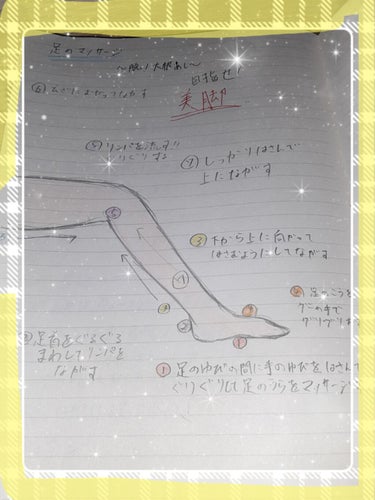 足のマッサージ
〜脱！大根あし〜
目指せ！
美脚
⑥
ながす
⑤ リンパをっ
ぐりぐりする
④ しっかりはさんで
上にながす
⑤
③ 下から上に向かって
はさむようにしてながす
④
③
②
④
①
足のこうを
グーの手で
グリグリ
足首をぐるぐる
まわしてリンパを
ながす
① 足のゆびの間に手のゆびをはさんで
ぐりぐりして足のうらをマッサージ